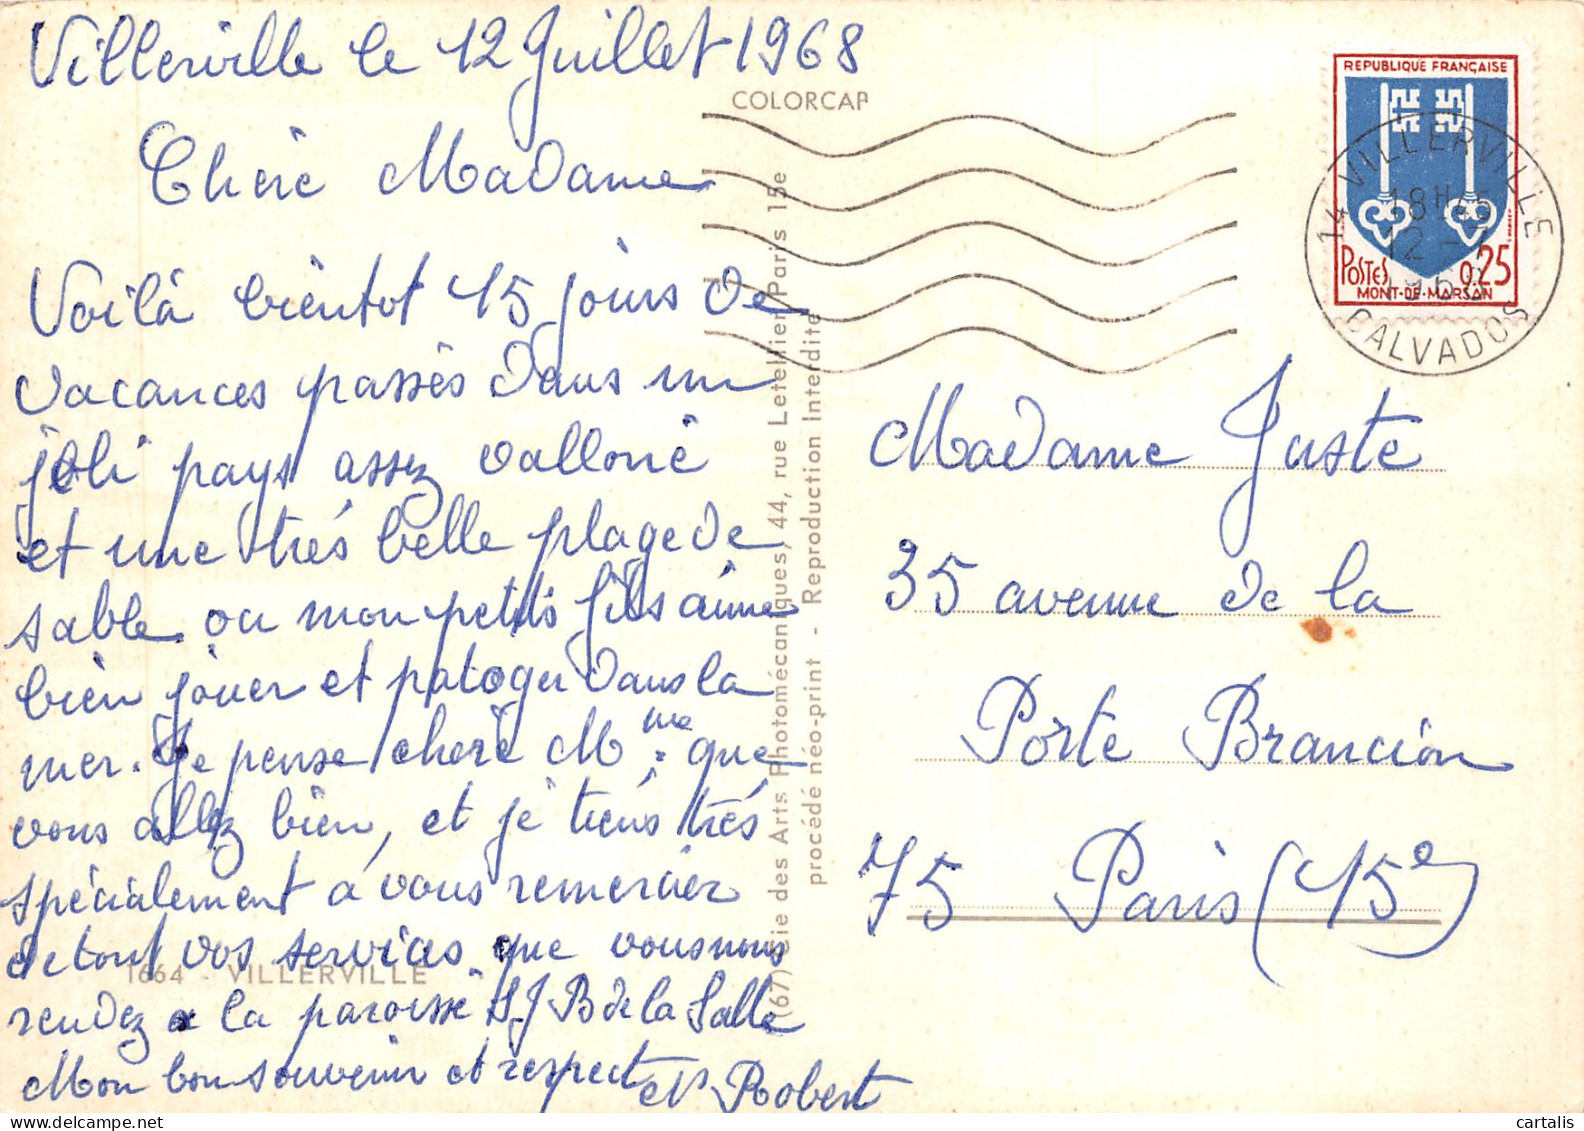 Villerville le 12 Juillet 1968
COLORCAP
Chère Madame
Voilà bientot 15 jours de
vacances passés dans un
joli pays assez valloné
et une très belle plage de
sable ou mon petits fils aime
bien jouer et patoger dans la
mer. Je pense chère Mme que
vous allez bien, et je tiens très
spécialement à vous remercier
de tout vos services que vous nous
rendez a la paroisse St J B de la Salle
Mon bon souvenir et respect
Robert
1664 - VILLERVILLE
(67) Cie des Arts Photomécaniques, 44, rue Letellier, Paris 15e
procédé néo-print - Reproduction Interdite
REPUBLIQUE FRANÇAISE
POSTES 0,25
MONT-DE-MARSAN
14 VILLERVILLE
18H45
12 - 7
1968
CALVADOS
Madame Juste
35 avenue de la
Porte Brancion
75 Paris (15e)
cartalis